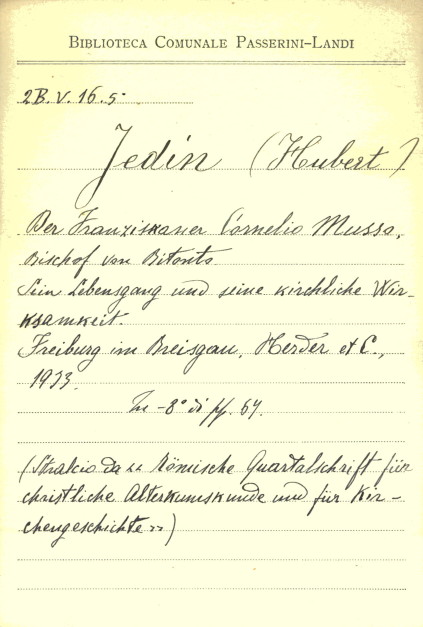 BIBLIOTECA COMUNALE PASSERINI-LANDI
2B. V. 16.5
Jedin (Hubert)
Der Franziskaner Cornelio Musso,
Bischof von Bitonto
Sein Lebensgang und seine kirchliche Wir-
ksamkeit.
Freiburg im Breisgau, Herder et C.,
1933.
In-8° di pp. 67.
(Stralcio da << Römische Quartalschrift für
christliche Alterkumskunde und für Kir-
chengeschichte >>)